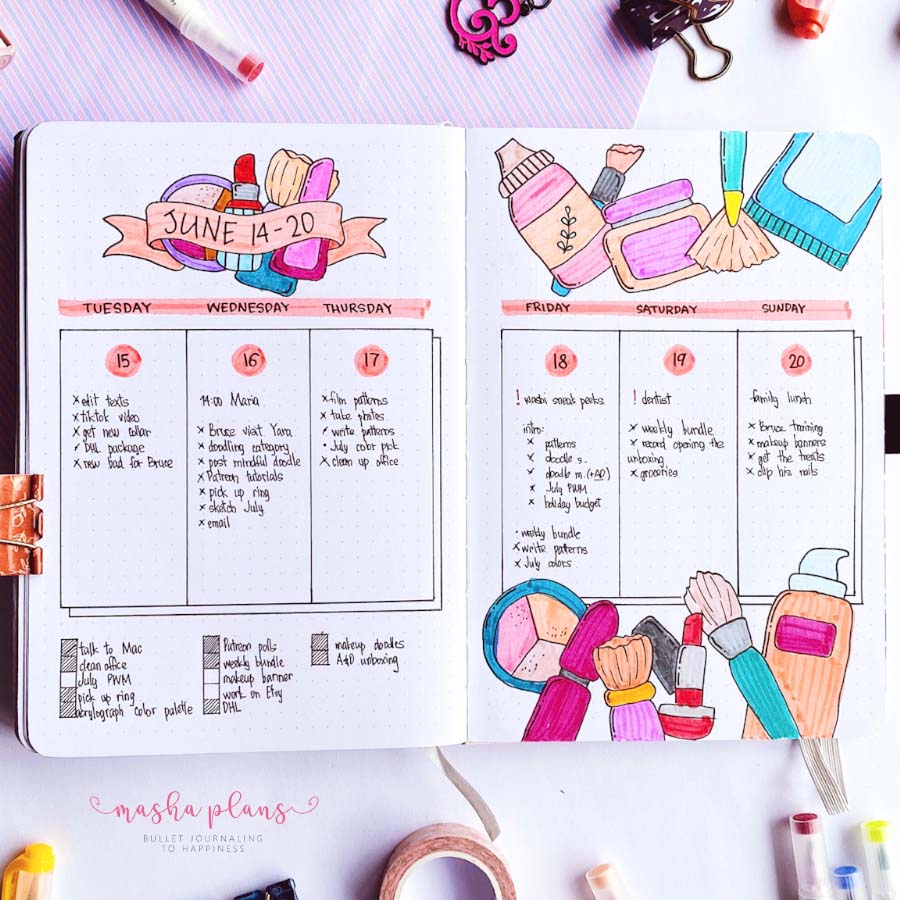 JUNE 14-20
TUESDAY WEDNESDAY THURSDAY
15
x edit texts
x tiktok video
x get new collar
DHL package
x new bad for Bruce
16
14:00 Maria
x Bruce visit Yara
x doodling category
x post mindful doodle
x Patreon tutorials
x pick up ring
x sketch July
x email
17
x film patterns
x take photos
write patterns
July color pick
x clean up office
talk to Mac
clean office
July PWM
pick up ring
acrylograph color palette
Patreon polls
weekly bundle
makeup banner
work on Etsy
DHL
makeup doodles
A&O unboxing
FRIDAY SATURDAY SUNDAY
18
! washi sneak peeks
intro:
x patterns
x doodle s.
x doodle m. (+AD)
x July PWM
x holiday budget
• weekly bundle
x write patterns
x July colors
19
! dentist
x weekly bundle
x record opening the
unboxing
x groceries
20
family lunch
x Bruce training
x makeup banners
x get the treats
x clip his nails
masha plans
BULLET JOURNALING
TO HAPPINESS